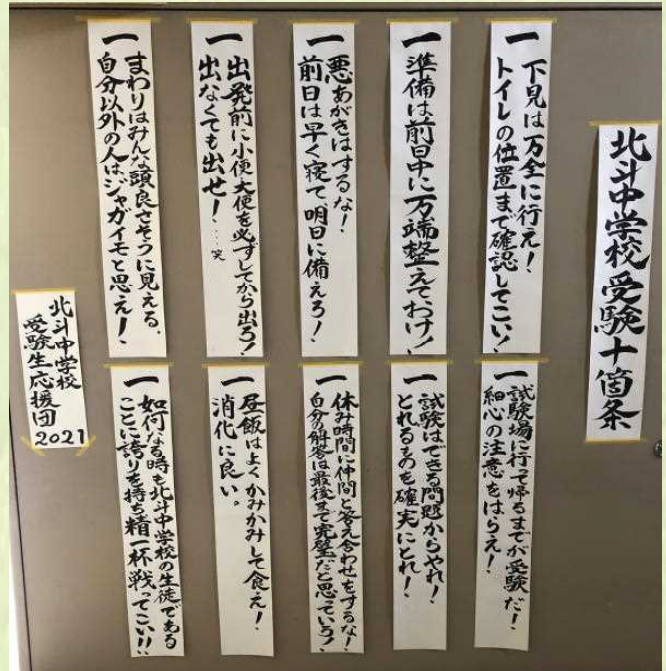 北斗中学校受験十箇条
一 下見は万全に行え!
トイレの位置まで確認してこい!
一 準備は前日中に万端整えておけ!
一 悪あがきはするな!
前日は早く寝て、明日に備えろ!
一 出発前に小便大便を必ずしてから出ろ!
出なくても出せ!…笑
一 まわりはみんな頭良さそうに見える、
自分以外の人は、ジャガイモと思え!
一 試験場に行って帰るまでが受験だ!
細心の注意をはらえ!
一 試験はできる問題からやれ!
とれるものを確実にとれ!
一 休み時間に仲間と答え合わせをするな!
自分の解答は最後まで完璧だと思っていろ!
一 昼飯はよくかみかみして食え!
消化に良い。
一 如何なる時も北斗中学校の生徒である
ことに誇りを持ち精一杯戦ってこい!!
北斗中学校
受験生応援団
2021